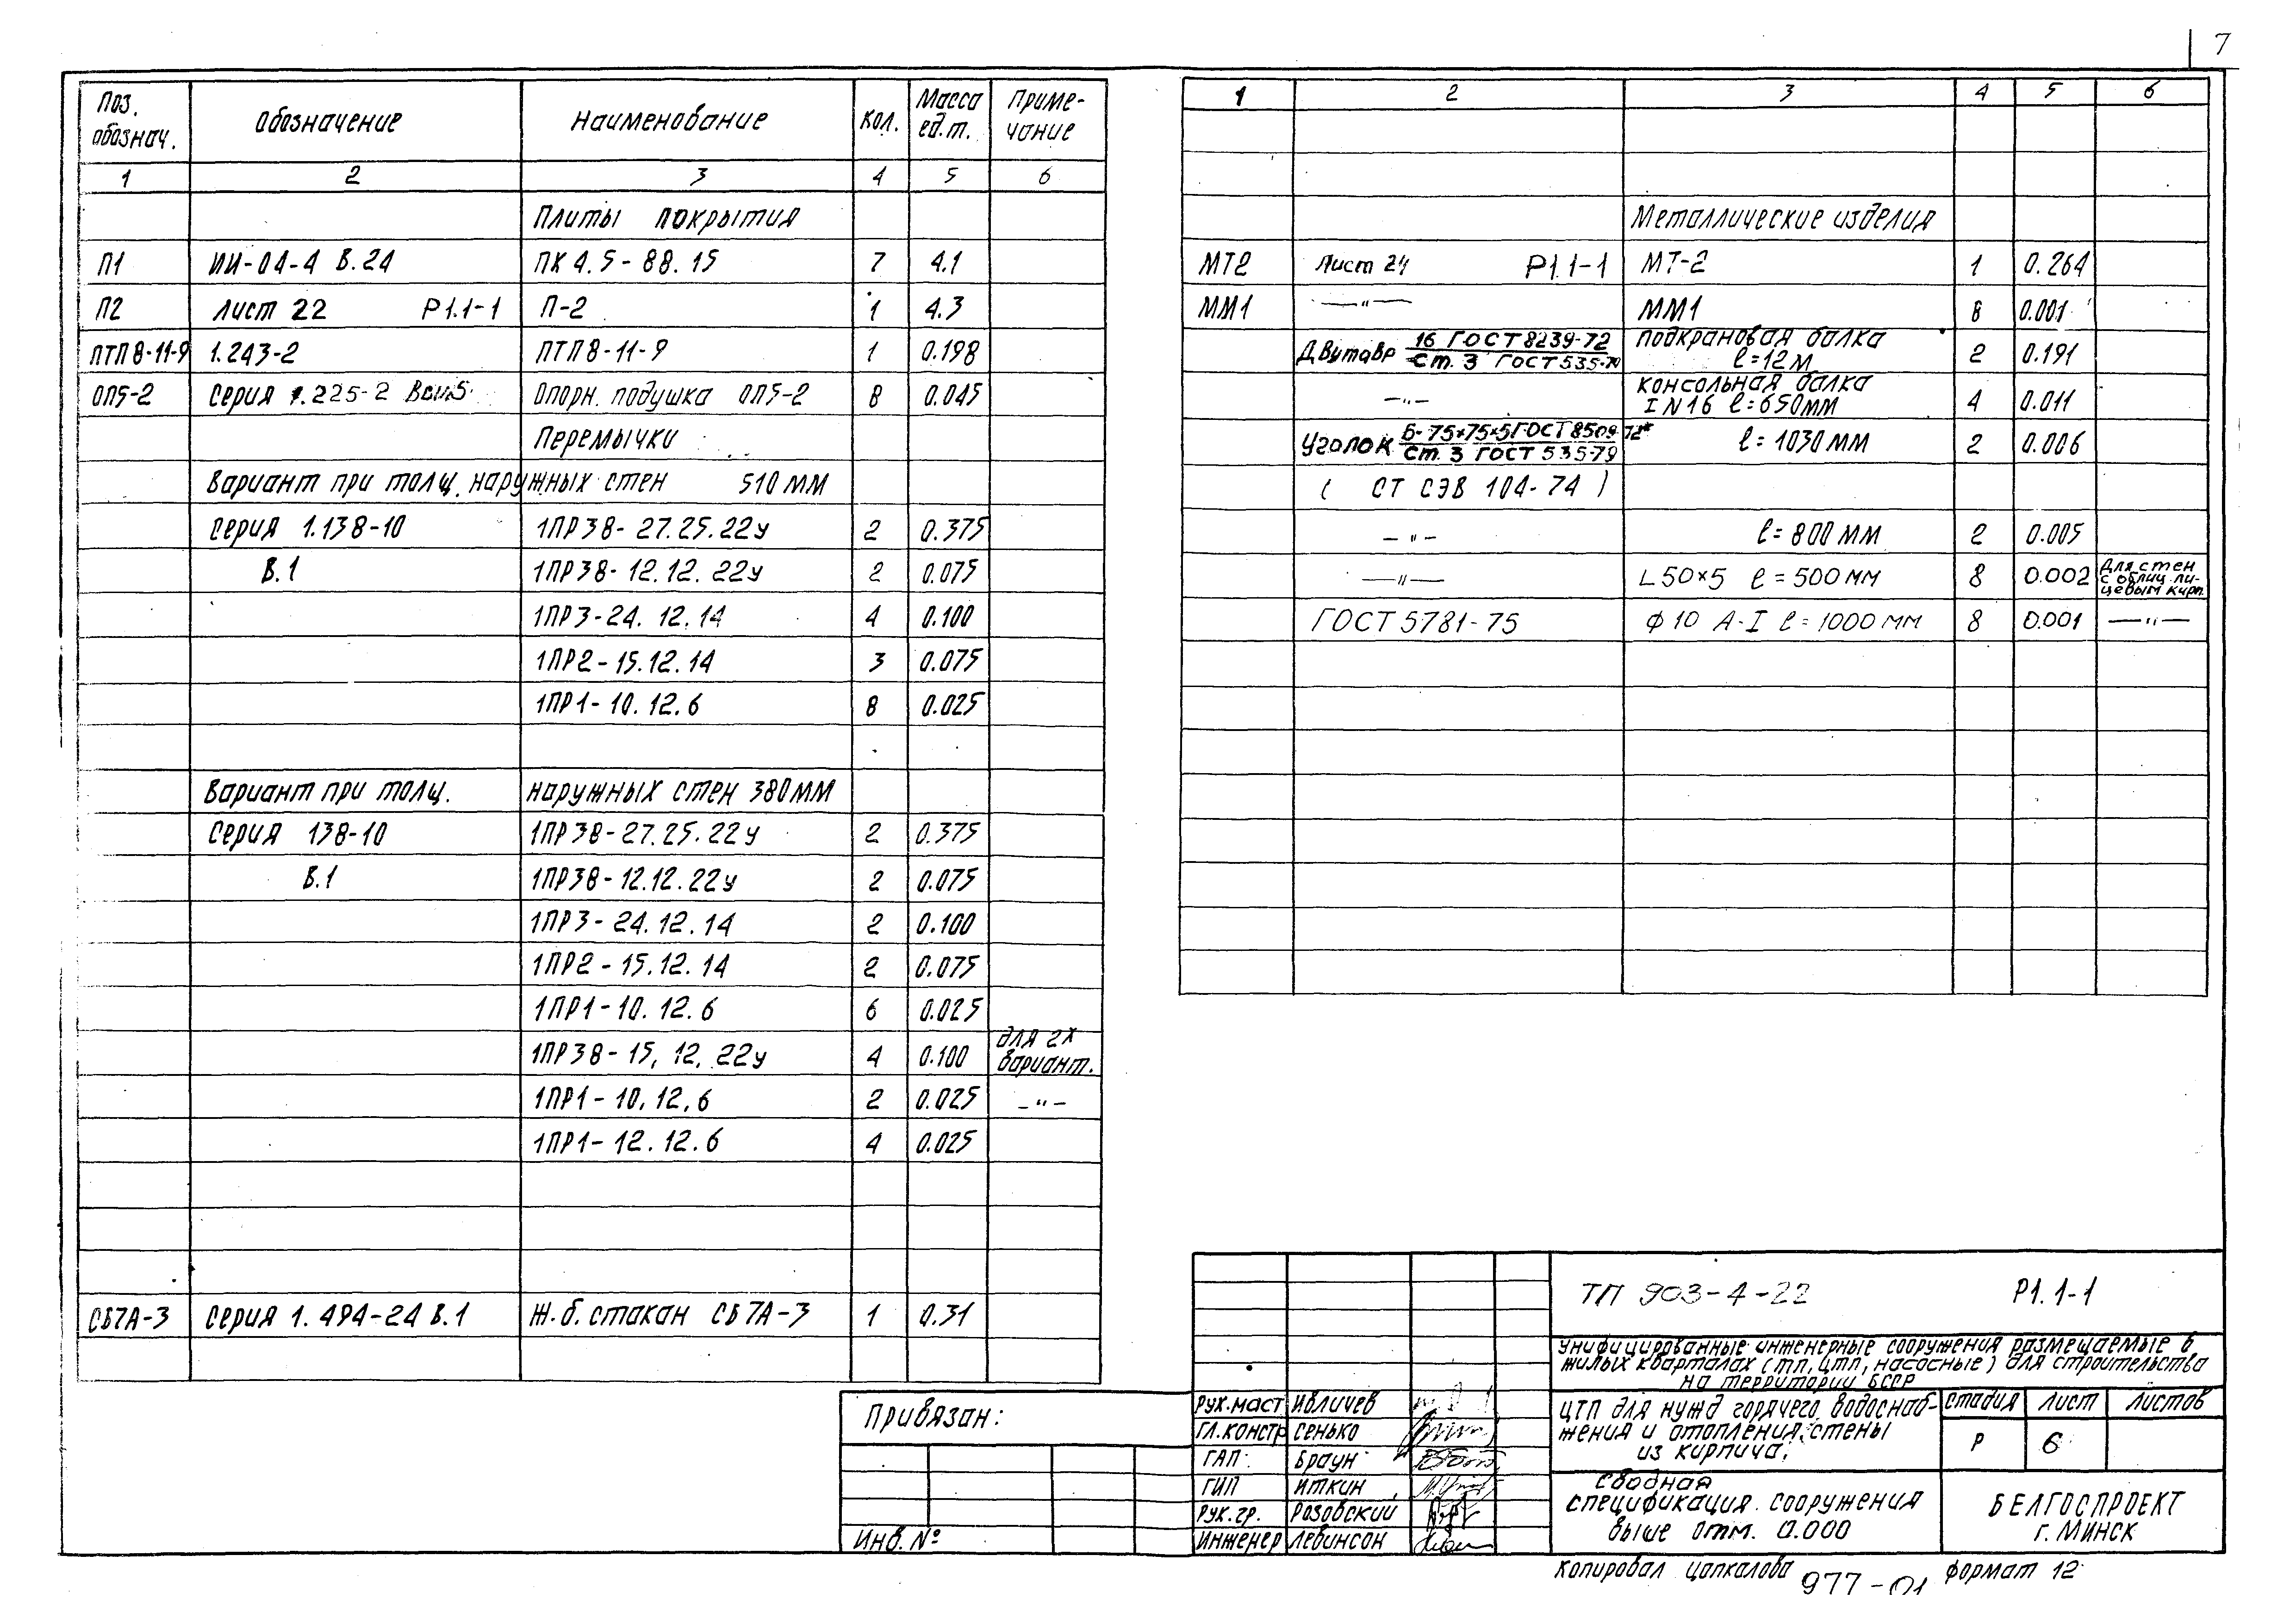 7
Поз. обознач. Обозначение Наименование Кол. Масса ед.т. Приме-чание
1 2 3 4 5 6
Плиты покрытия
П1 ИИ-04-4 В.24 ПК 4.5-88.15 7 4.1
П2 Лист 22 Р1.1-1 П-2 1 4.3
ПТП8-11-9 1.243-2 ПТП8-11-9 1 0.198
ОП5-2 Серия 1.225-2 Вып.5 Опорн. подушка ОП5-2 8 0.045
Перемычки
Вариант при толщ. наружных стен 510 мм
Серия 1.138-10 1ПР38-27.25.22у 2 0.375
В.1 1ПР38-12.12.22у 2 0.075
1ПР3-24.12.14 4 0.100
1ПР2-15.12.14 3 0.075
1ПР1-10.12.6 8 0.025
Вариант при толщ. наружных стен 380мм
Серия 138-10 1ПР38-27.25.22у 2 0.375
В.1 1ПР38-12.12.22у 2 0.075
1ПР3-24.12.14 2 0.100
1ПР2-15.12.14 2 0.075
1ПР1-10.12.6 6 0.025
1ПР38-15,12,22у 4 0.100 для 2х вариант.
1ПР1-10,12,6 2 0.025 -"-
1ПР1-12.12.6 4 0.025
СБ7А-3 Серия 1.494-24 В.1 Ж.б. стакан СБ7А-3 1 0.31
1 2 3 4 5 6
Металлические изделия
МТ2 Лист 24 Р1.1-1 МТ-2 1 0.264
ММ1 —"— ММ1 8 0.001
Двутавр 16 ГОСТ 8239-72 / Ст. 3 ГОСТ 535-79 подкрановая балка ℓ=12м 2 0.191
-"- консольная балка I N16 ℓ=650мм 4 0.011
Уголок Б-75×75×5 ГОСТ 8509-72* / Ст. 3 ГОСТ 535-79 ℓ=1030 мм 2 0.006
( СТ СЭВ 104-74 )
-"- ℓ=800 мм 2 0.005
—"— L 50×5 ℓ=500 мм 8 0.002 Для стен с облиц. ли-цевым кирп.
ГОСТ 5781-75 ф 10 А-I ℓ=1000 мм 8 0.001 —"—
ТП 903-4-22 Р1.1-1
Унифицированные инженерные сооружения размещаемые в
жилых кварталах (тп, цтп, насосные) для строительства
на территории БССР
Рук.маст Ивличев
Гл.констр Сенько
ГАП Браун
ГИП Иткин
Рук.гр. Розовский
Инженер Левинсон
ЦТП для нужд горячего водоснаб-
жения и отопления, стены
из кирпича.
Стадия Лист Листов
Р 6
Сводная
спецификация. сооружения
выше отм. 0.000
БЕЛГОСПРОЕКТ
г. Минск
Привязан:
Инв. №
Копировал Цапкалова 977-01 формат 12